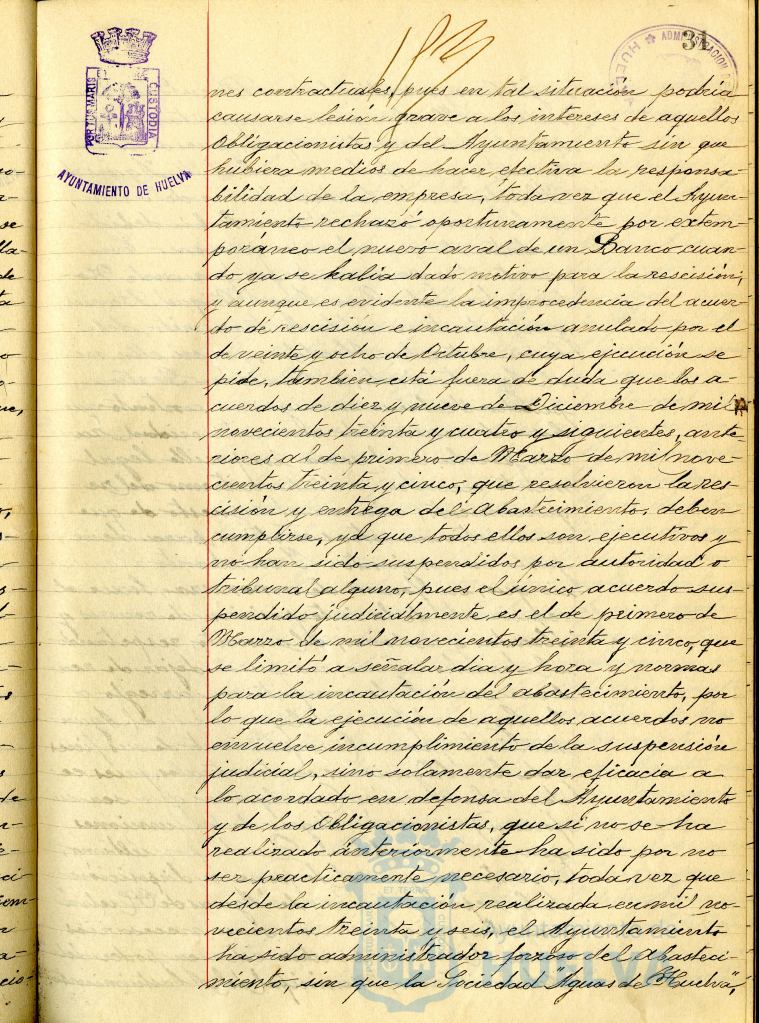 183
34
ADMINISTRACION
HUELVA
PORTUS MARIS
CUSTODIA
AYUNTAMIENTO DE HUELVA
nes contractuales, pues en tal situación podría
causarse lesión grave a los intereses de aquellos
Obligacionistas y del Ayuntamiento sin que
hubiera medios de hacer efectiva la responsa-
bilidad de la empresa, toda vez que el Ayun-
tamiento rechazó oportunamente por extem-
poraneo el nuevo aval de un Banco cuan-
do ya se habia dado motivo para la rescisión;
y aunque es evidente la improcedencia del acuer-
do de rescisión e incautación anulado por el
de veinte y ocho de Octubre, cuya ejecución se
pide, tambien está fuera de duda que los a-
cuerdos de diez y nueve de Diciembre de mil
novecientos treinta y cuatro y siguientes, ante-
riores al de primero de Marzo de mil nove-
cientos treinta y cinco, que resolvieron la res-
cisión y entrega del Abastecimiento, deben
cumplirse, ya que todos ellos son ejecutivos y
no han sido suspendidos por autoridad o
tribunal alguno, pues el único acuerdo sus-
pendido judicialmente es el de primero de
Marzo de mil novecientos treinta y cinco, que
se limitó a señalar dia y hora y normas
para la incautación del abastecimiento, por
lo que la ejecución de aquellos acuerdos no
envuelve incumplimiento de la suspensión
judicial, sino solamente dar eficacia a
lo acordado en defensa del Ayuntamiento
y de los Obligacionistas, que si no se ha
realizado ánteriormente ha sido por no
ser practicamente necesario, toda vez que
desde la incautación realizada en mil no-
vecientos treinta y seis, el Ayuntamiento
ha sido administrador forzoso del Abasteci-
miento, sin que la Sociedad "Aguas de Huelva",